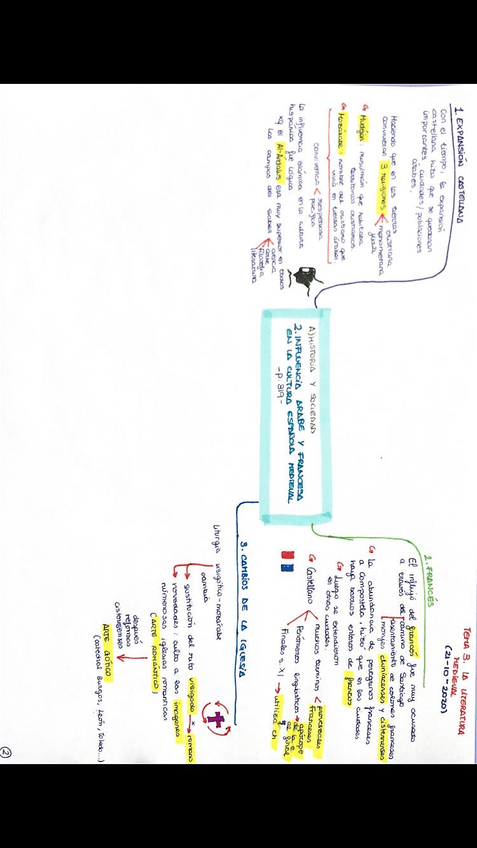 TEMA 3. LA LITERATURA
MEDIEVAL
(21-10-2020)
A) HISTORIA Y SOCIEDAD
2. INFLUENCIA ARABE Y FRANCESA
EN LA CULTURA ESPAÑOLA MEDIEVAL
- p. 319 -
1. EXPANSIÓN CASTELLANA
Con el tiempo, la expansión
castellana hizo que se quedaran
importantes ciudades/poblaciones
árabes.
Haciendo que en las tierras
convivieran 3 religiones
cristiana
mahometana
judía
Mudéjar: musulmán que habitaba
territorios cristianos
Mozárabe: nombre del cristiano que
vivía en tierras árabes
convivencia
respetuosa
pacífica
La influencia islámica en la cultura
hispánica fue lógica
xq el Al-Ándalus era muy superior en todos
los campos del saber
ciencia
arte
filosofía
literatura
2. FRANCÉS
El influjo del francés fue muy acusado
a través del Camino de Santiago
asentamiento de colonos franceses
monjes cluniacenses y cistercienses
La abundancia de peregrinos franceses
a Compostela, hizo que en las ciudades
haya barrios enteros de francos
Luego se extendieron
en otras ciudades.
Castellano
nuevos términos
franceses
Fenómenos lingüísticos
apócope
de la e
final
Finales s. XI
3. CAMBIOS DE LA IGLESIA
Liturgia visigótico-mozárabe
cambia
sustitución del rito visigodo x romano
novedades: culto a las imágenes
numerosas iglesias románicas
(ARTE ROMÁNICO)
después
reformas
cistercienses
ARTE GÓTICO
(catedral Burgos, León, Toledo...)
2